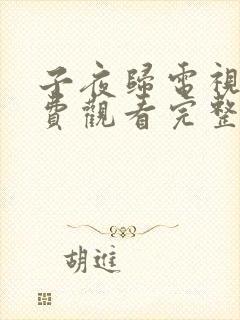 子夜歸電視
費觀看完整
胡進